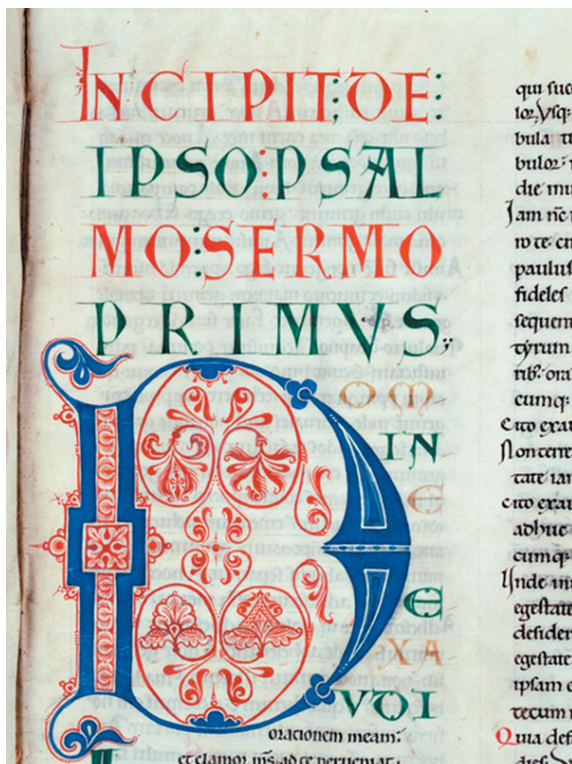 INCIPIT:DE:
IPSO:PSAL
MO:SERMO
PRIMVS;
D OM
IN
E
E
XA
VDI
orationem meam:
et clamor ms ad te perueniat.
qui suc
lor. Vsq:
bula
bulor:
die mu
Jam nc
ro te
paulus
fideles
sequen
tyrum
rib: ora
cumq:
Cito exau
Non terre
tate iam
cito exau
adhuc
cumq:
Unde
egestate
desider
egestate
ipsam e
tecum
Quia def